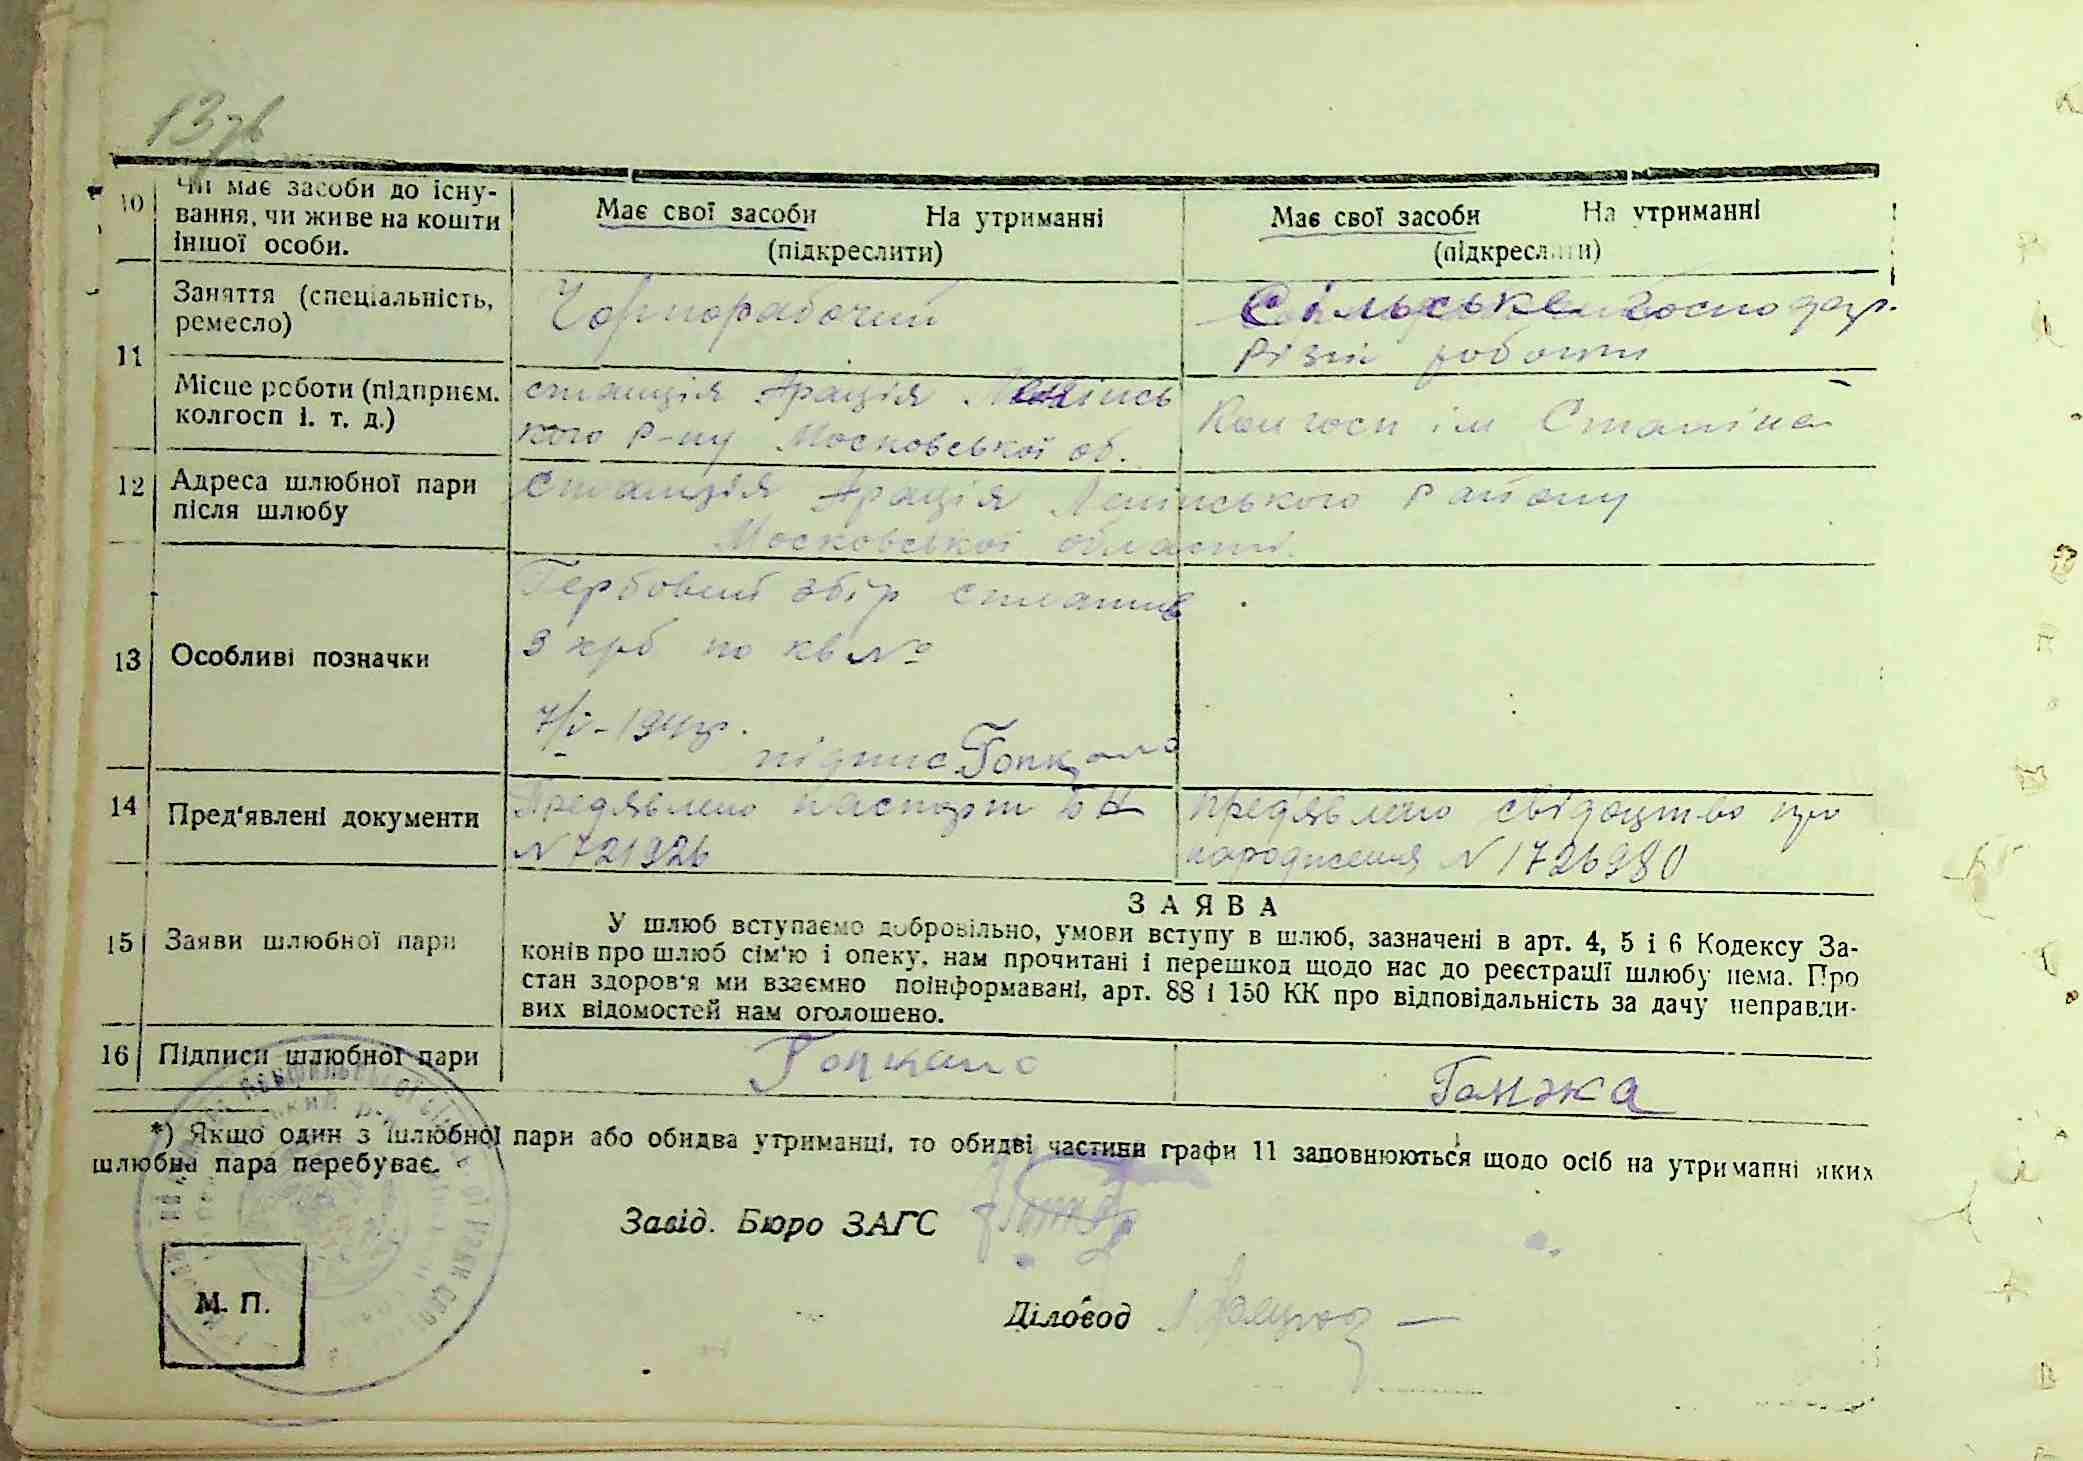 13зв
10 Чи має засоби до існу-
вання, чи живе на кошти
іншої особи.
Має свої засоби На утриманні
(підкреслити)
Має свої засоби На утриманні
(підкреслити)
11 Заняття (спеціальність,
ремесло)
Чорнорабочий
Сільське господар.
різні роботи
Місце роботи (підприєм.
колгосп і. т. д.)
станція Арація Ленінсь
кого р-ну Московської об.
Колгосп ім Сталіна
12 Адреса шлюбної пари
після шлюбу
Станція Арація Ленінського району
Московської області.
13 Особливі позначки
Гербовий збір сплатив
3 крб по кв №
підпис Гопкало
14 Пред'явлені документи
Предявлено паспорт
N 721926
предявлено свідоцтво про
народження N 1726980
15 Заяви шлюбної пари
ЗАЯВА
У шлюб вступаємо добровільно, умови вступу в шлюб, зазначені в арт. 4, 5 і 6 Кодексу За-
конів про шлюб сім'ю і опеку, нам прочитані і перешкод щодо нас до реєстрації шлюбу нема. Про
стан здоров'я ми взаємно поінформавані, арт. 88 і 150 КК про відповідальність за дачу неправди-
вих відомостей нам оголошено.
16 Підписи шлюбної пари
Гопкало
Гонжа
*) Якщо один з шлюбної пари або обидва утриманці, то обидві частини графи 11 заповнюються щодо осіб на утриманні яких
шлюбна пара перебуває.
Завід. Бюро ЗАГС
Діловод
М. П.